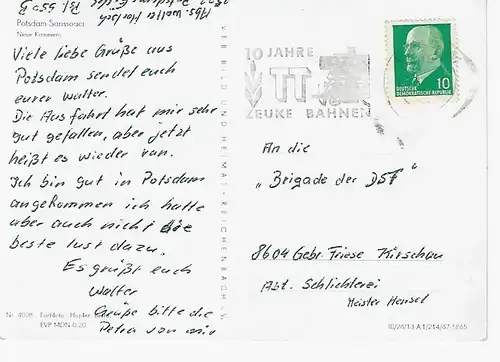 Abs. Walter
Potsdam-Sanssouci
Neue Kammern
Viele liebe Grüße aus
Potsdam sendet euch
eurer Walter.
Die Ausfahrt hat mir sehr
gut gefallen, aber jetzt
heißt es wieder ran.
Ich bin gut in Potsdam
angekommen ich hatte
aber auch nicht die
beste lust dazu.
Es grüßt euch
Walter
Grüße bitte die
Petra von mir
Nr. 4078
EVP MDN 0,20
VEB BILD UND HEIMAT REICHENBACH i. V.
10 JAHRE
TT
ZEUKE BAHNEN
DEUTSCHE
DEMOKRATISCHE REPUBLIK
10
An die
„Brigade der DSF“
8604 Gebr. Friese Kirschau
Abt. Schlichterei
Meister Hensel
III/26/13 A 1/214/67 5865